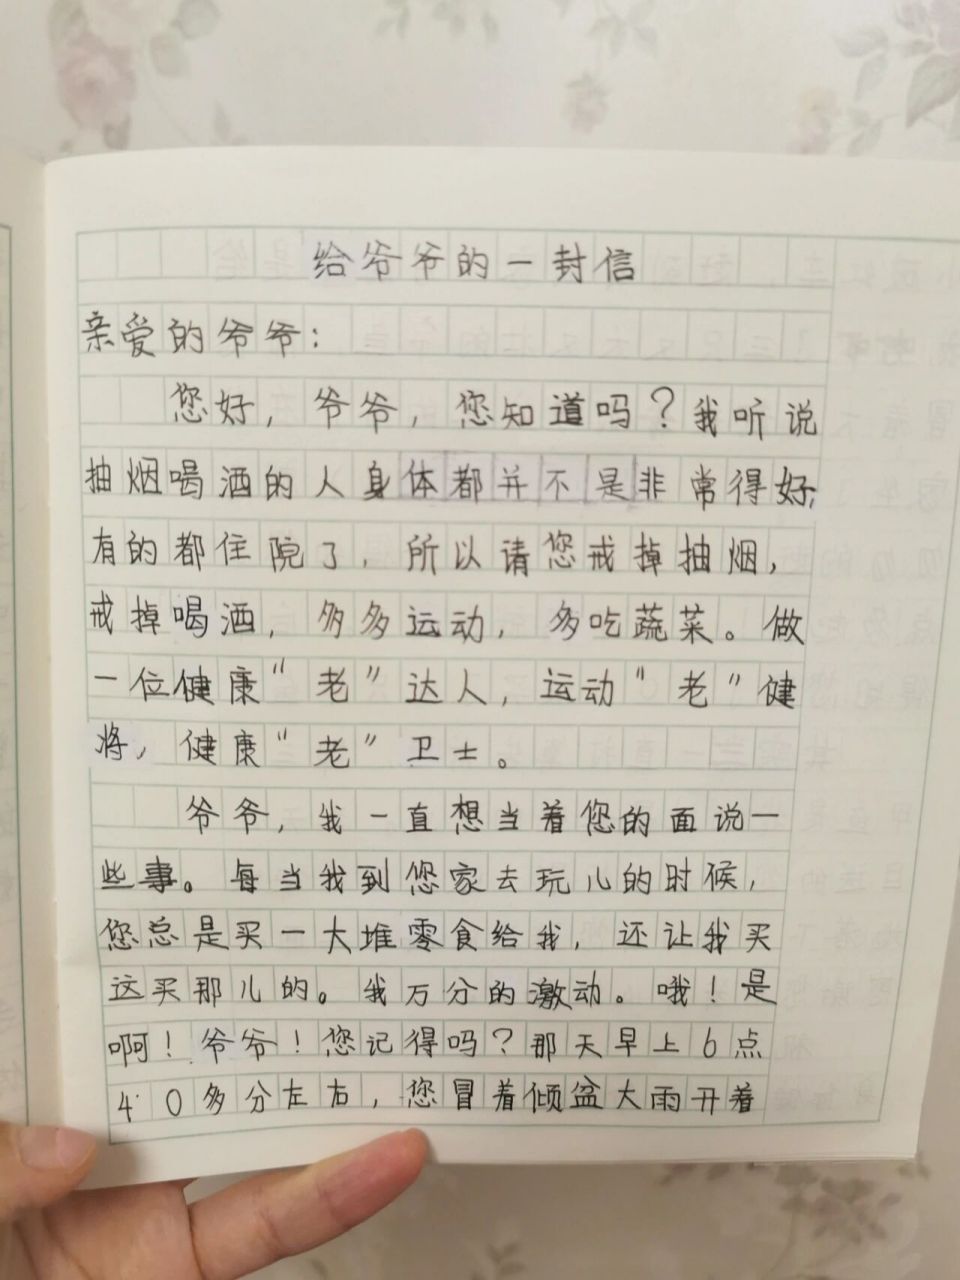 给爷爷的一封信
亲爱的爷爷：
您好，爷爷，您知道吗？我听说
抽烟喝酒的人身体都并不是非常得好，
有的都住院了，所以请您戒掉抽烟，
戒掉喝酒，多多运动，多吃蔬菜。做
一位健康“老”达人，运动“老”健
将，健康“老”卫士。
爷爷，我一直想当着您的面说一
些事。每当我到您家去玩儿的时候，
您总是买一大堆零食给我，还让我买
这买那儿的。我万分的激动。哦！是
啊！爷爷！您记得吗？那天早上6点
40多分左右，您冒着倾盆大雨开着